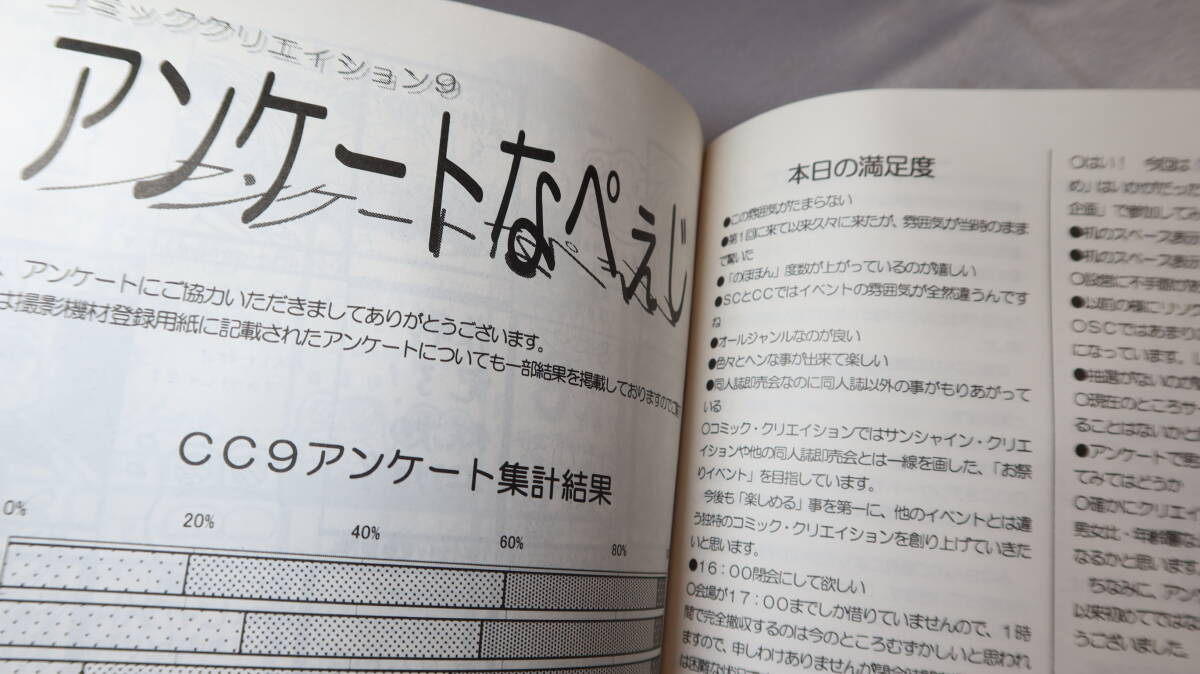 コミッククリエイション9
アンケートなぺえじ
、アンケートにご協力いただきましてありがとうございます。
は撮影機材登録用紙に記載されたアンケートについても一部結果を掲載しておりますので
CC9アンケート集計結果
0% 20% 40% 60% 80%
本日の満足度
●この雰囲気がたまらない
●第1回に来て以来久々に来たが、雰囲気が当時のまま
で驚いた
●「のほほん」度数が上がっているのが嬉しい
●SCとCCではイベントの雰囲気が全然違うんです
ね
●オールジャンルなのが良い
●色々とヘンな事が出来て楽しい
●同人誌即売会なのに同人誌以外の事がもりあがって
いる
○コミック・クリエイションではサンシャイン・クリエ
イションや他の同人誌即売会とは一線を画した、「お祭
りイベント」を目指しています。
今後も「楽しめる」事を第一に、他のイベントとは違
う独特のコミック・クリエイションを創り上げていきた
いと思います。
●16:00閉会にして欲しい
○会場が17:00までしか借りていませんので、1時
間で完全撤収するのは今のところむずかしいと思われ
ますので、申しわけありませんが
○はい! 今回は
め」はいかがだった
企画」で参加して
●机のスペース表示
●机のスペース表示
○設営に不手際
●以前の様にリング
○SCではあまり
になっています。
●抽選がないのが
○現在のところサ
ることはないかと
●アンケートで
てみてはどうか
○確かにクリエイ
男女比・年齢層な
なるかと思います
ちなみに、アン
以来初めてではな
うございました。